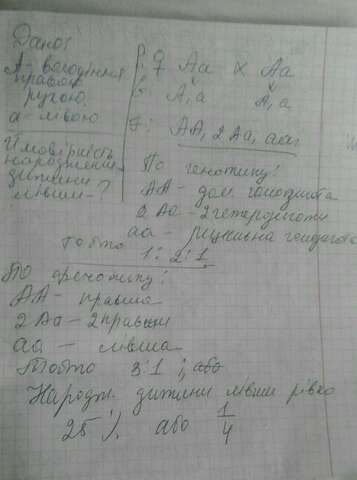 Дано:
А - володіння
правою
рукою
а - лівою
Ймовірність
народження
дитини
лівши - ?
P: ♀ Аа х Аа
G: А, а А, а
F: АА, 2Аа, аа
По генотипу:
АА - дом гомозигота
2Аа - 2 гетерозиготи
аа - рецисивна гомозигота
тобто 1:2:1
По фенотипу:
АА - правша
2Аа - 2 правши
аа - лівша
Тобто 3:1; або
Народж. дитини лівши рівно
25% або 1/4